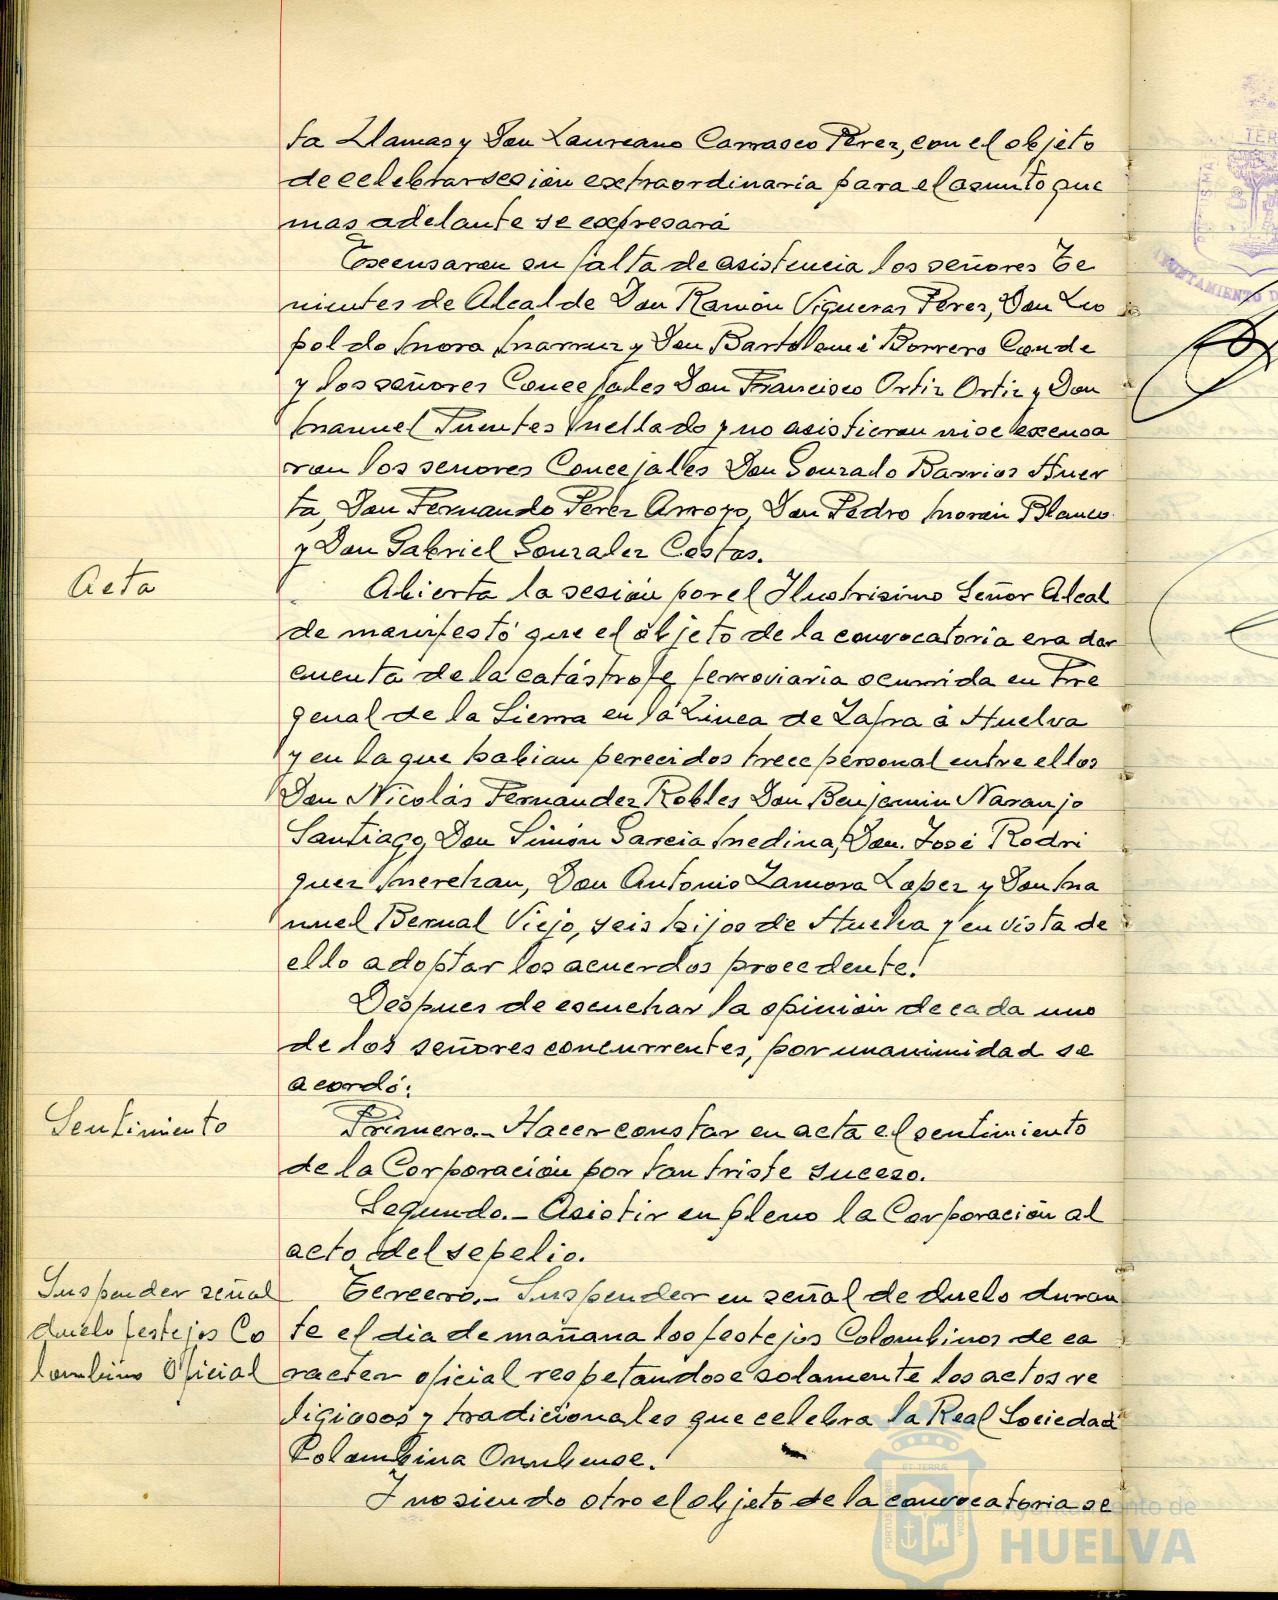 ta Llamas y Don Laureano Carrasco Pérez, con el objeto
de celebrar sesión extraordinaria para el asunto que
mas adelante se expresará
Excusaron su falta de asistencia los señores Te
nientes de Alcalde Don Ramón Vigueras Pérez, Don Leo
poldo Mora y Don Bartolomé Borrero Conde
y los señores Concejales Don Francisco Ortiz Ortiz y Don
Manuel Fuentes Mellado y no asistieron ni se excusa
ron los senores Concejales Don Gonzalo Barrios Huer
ta, Don Fernando Pérez Arroyo, Don Pedro Morón Blanco
y Don Gabriel Gonzalez Costas.
Acta
Abierta la sesión por el Ilustrisimo Señor Alcal
de manifestó que el objeto de la convocatoria era dar
cuenta de la catástrofe ferroviaria ocurrida en Fre
genal de la Sierra en la Linea de Zafra á Huelva
y en la que habian perecidos trece personal entre ellos
Don Nicolás Fernández Robles Don Benjamin Naranjo
Santiago, Don Simón Garcia Medina, Don José Rodri
guez Merchan, Don Antonio Zamora Lopez y Don Ma
nuel Bernal Viejo, seis hijos de Huelva y en vista de
ello adoptar los acuerdos procedente!
Despues de escuchar la opinión de cada uno
de los señores concurrentes, por unanimidad se
acordó:
Sentimiento
Primero.- Hacer constar en acta el sentimiento
de la Corporación por tan triste suceso.
Segundo.- Asistir en pleno la Corporación al
acto del sepelio.
Suspender señal
duelo festejos Co
lombino Oficial
Tercero.- Suspender en señal de duelo duran
te el dia de mañana los festejos Colombinos de ca
racter oficial respetandose solamente los actos re
ligiosos y tradicionales que celebra la Real Sociedad
Colombina Onubense.
Y no siendo otro el objeto de la convocatoria se
Ayuntamiento de
HUELVA
AYUNTAMIENTO D